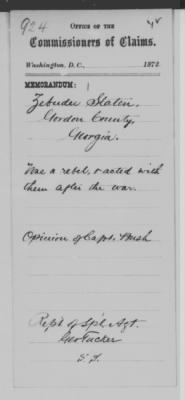 924
OFFICE OF THE
Commissioners of Claims.
Washington, D. C., 1872
MEMORANDUM:
Zebuder Slatin,
Gordon County,
Georgia.
Was a rebel, & acted with
them after the war.
Opinion of Capt. Nesh
Rep't of Spl. Agt.
Geo Tucker